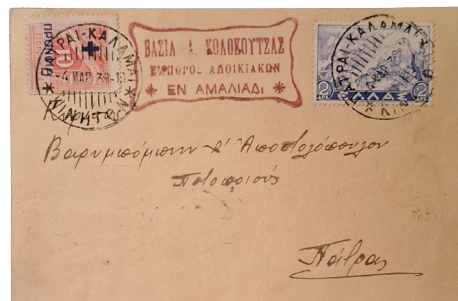 ΠΑΤΡΑΙ-ΚΑΛΑΜΑΙ
-4 ΜΑΡ 39
ΚΙΝΗΤΟΝ
ΠΡΟΝΟΙΑ
ΒΑΣΙΛ. Α. ΚΟΛΟΚΟΥΤΖΑΣ
ΕΜΠΟΡΟΣ ΑΠΟΙΚΙΑΚΩΝ
ΕΝ ΑΜΑΛΙΑΔΙ
ΠΑΤΡΑΙ-ΚΑΛΑΜΑΙ
2 ΕΛΛΑΣ 2
Βαρυμπόμπην & Αποστολόπουλον
Ποτοποιούς
Πάτρας